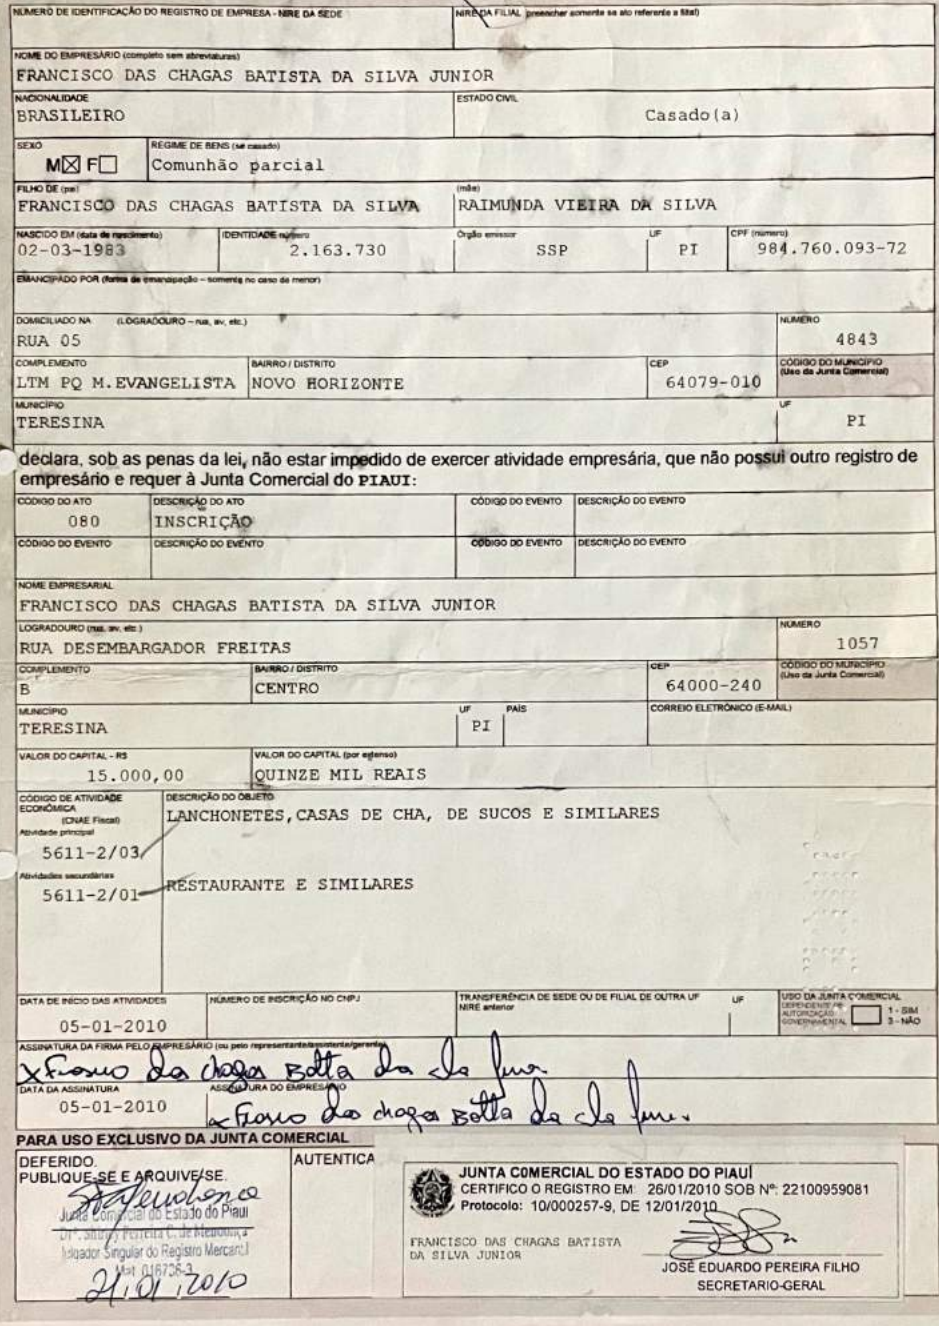 NÚMERO DE IDENTIFICAÇÃO DO REGISTRO DE EMPRESA - NIRE DA SEDE
NIRE DA FILIAL (preencher somente se ato referente a filial)
NOME DO EMPRESÁRIO (completo sem abreviaturas)
FRANCISCO DAS CHAGAS BATISTA DA SILVA JUNIOR
NACIONALIDADE
BRASILEIRO
ESTADO CIVIL
Casado(a)
SEXO
M☒ F☐
REGIME DE BENS (se casado)
Comunhão parcial
FILHO DE (pai)
FRANCISCO DAS CHAGAS BATISTA DA SILVA
(mãe)
RAIMUNDA VIEIRA DA SILVA
NASCIDO EM (data de nascimento)
02-03-1983
IDENTIDADE número
2.163.730
Órgão emissor
SSP
UF
PI
CPF (número)
984.760.093-72
EMANCIPADO POR (forma de emancipação – somente no caso de menor)
DOMICILIADO NA (LOGRADOURO – rua, av, etc.)
RUA 05
NÚMERO
4843
COMPLEMENTO
LTM PQ M.EVANGELISTA
BAIRRO / DISTRITO
NOVO HORIZONTE
CEP
64079-010
CÓDIGO DO MUNICÍPIO
(Uso da Junta Comercial)
MUNICÍPIO
TERESINA
UF
PI
declara, sob as penas da lei, não estar impedido de exercer atividade empresária, que não possui outro registro de
empresário e requer à Junta Comercial do PIAUI:
CÓDIGO DO ATO
080
DESCRIÇÃO DO ATO
INSCRIÇÃO
CÓDIGO DO EVENTO
DESCRIÇÃO DO EVENTO
CÓDIGO DO EVENTO
DESCRIÇÃO DO EVENTO
CÓDIGO DO EVENTO
DESCRIÇÃO DO EVENTO
NOME EMPRESARIAL
FRANCISCO DAS CHAGAS BATISTA DA SILVA JUNIOR
LOGRADOURO (rua, av, etc.)
RUA DESEMBARGADOR FREITAS
NÚMERO
1057
COMPLEMENTO
B
BAIRRO / DISTRITO
CENTRO
CEP
64000-240
CÓDIGO DO MUNICÍPIO
(Uso da Junta Comercial)
MUNICÍPIO
TERESINA
UF
PI
PAÍS
CORREIO ELETRÔNICO (E-MAIL)
VALOR DO CAPITAL - R$
15.000,00
VALOR DO CAPITAL (por extenso)
QUINZE MIL REAIS
CÓDIGO DE ATIVIDADE
ECONÔMICA
(CNAE Fiscal)
Atividade principal
5611-2/03
Atividades secundárias
5611-2/01
DESCRIÇÃO DO OBJETO
LANCHONETES, CASAS DE CHA, DE SUCOS E SIMILARES
RESTAURANTE E SIMILARES
DATA DE INÍCIO DAS ATIVIDADES
05-01-2010
NÚMERO DE INSCRIÇÃO NO CNPJ
TRANSFERÊNCIA DE SEDE OU DE FILIAL DE OUTRA UF
NIRE anterior
UF
USO DA JUNTA COMERCIAL
DEPENDENTE DE
AUTORIZAÇÃO
GOVERNAMENTAL
1 - SIM
3 - NÃO
ASSINATURA DA FIRMA PELO EMPRESÁRIO (ou pelo representante/assistente/gerente)
DATA DA ASSINATURA
05-01-2010
ASSINATURA DO EMPRESÁRIO
PARA USO EXCLUSIVO DA JUNTA COMERCIAL
DEFERIDO.
PUBLIQUE-SE E ARQUIVE/SE.
Junta Comercial do Estado do Piauí
Julgador Singular do Registro Mercantil
Mat. 016736-3
21/01/2010
AUTENTICA
JUNTA COMERCIAL DO ESTADO DO PIAUÍ
CERTIFICO O REGISTRO EM: 26/01/2010 SOB Nº: 22100959081
Protocolo: 10/000257-9, DE 12/01/2010
FRANCISCO DAS CHAGAS BATISTA
DA SILVA JUNIOR
JOSÉ EDUARDO PEREIRA FILHO
SECRETARIO-GERAL